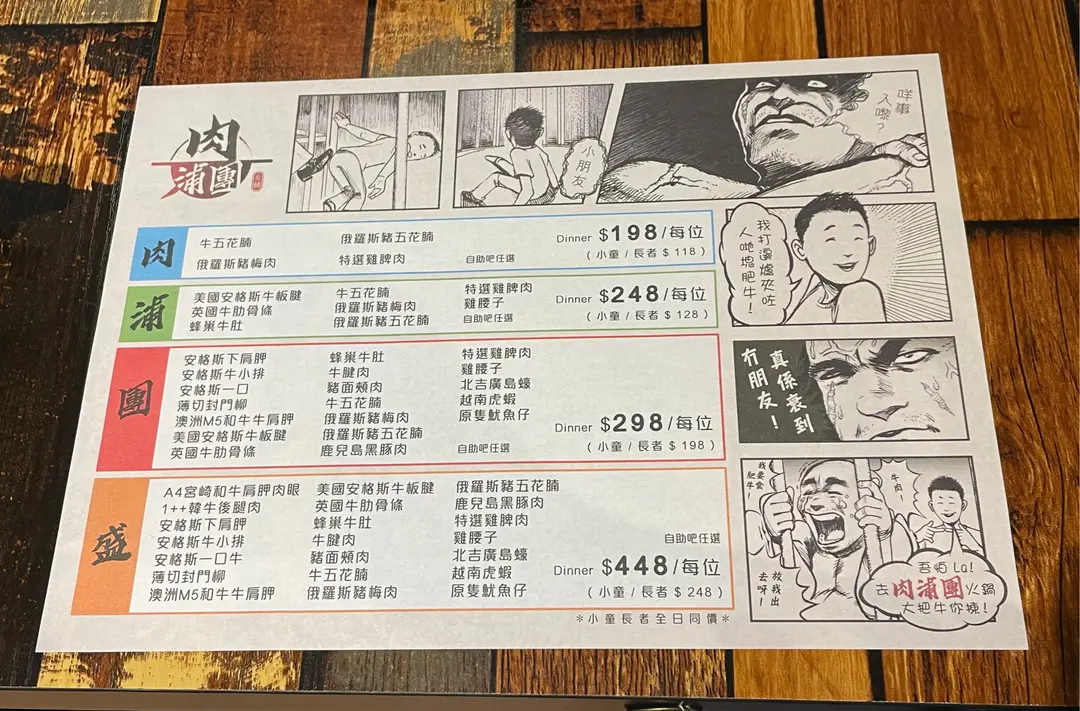 肉
浦團
小朋友
咩事
入嚟?
我打瀉爐夾咗
人哋塊肥牛!
真係衰到
冇朋友!
我要食
肥牛!
放我出
去呀!
牛肉!
吾怕 La!
去肉浦團火鍋
大把牛你揀!
肉
牛五花腩 俄羅斯豬五花腩
俄羅斯豬梅肉 特選雞脾肉 自助吧任選
Dinner $198/每位
( 小童 / 長者 $ 118 )
浦
美國安格斯牛板腱 牛五花腩 特選雞脾肉
英國牛肋骨條 俄羅斯豬梅肉 雞腰子
蜂巢牛肚 俄羅斯豬五花腩 自助吧任選
Dinner $248/每位
( 小童 / 長者 $ 128 )
團
安格斯下肩胛 蜂巢牛肚 特選雞脾肉
安格斯牛小排 牛腱肉 雞腰子
安格斯一口 豬面頰肉 北吉廣島蠔
薄切封門柳 牛五花腩 越南虎蝦
澳洲M5和牛牛肩胛 俄羅斯豬梅肉 原隻魷魚仔
美國安格斯牛板腱 俄羅斯豬五花腩
英國牛肋骨條 鹿兒島黑豚肉 自助吧任選
Dinner $298/每位
( 小童 / 長者 $ 198 )
盛
A4宮崎和牛肩胛肉眼 美國安格斯牛板腱 俄羅斯豬五花腩
1++韓牛後腿肉 英國牛肋骨條 鹿兒島黑豚肉
安格斯下肩胛 蜂巢牛肚 特選雞脾肉
安格斯牛小排 牛腱肉 雞腰子 自助吧任選
安格斯一口牛 豬面頰肉 北吉廣島蠔
薄切封門柳 牛五花腩 越南虎蝦
澳洲M5和牛牛肩胛 俄羅斯豬梅肉 原隻魷魚仔
Dinner $448/每位
( 小童 / 長者 $ 248 )
*小童長者全日同價*